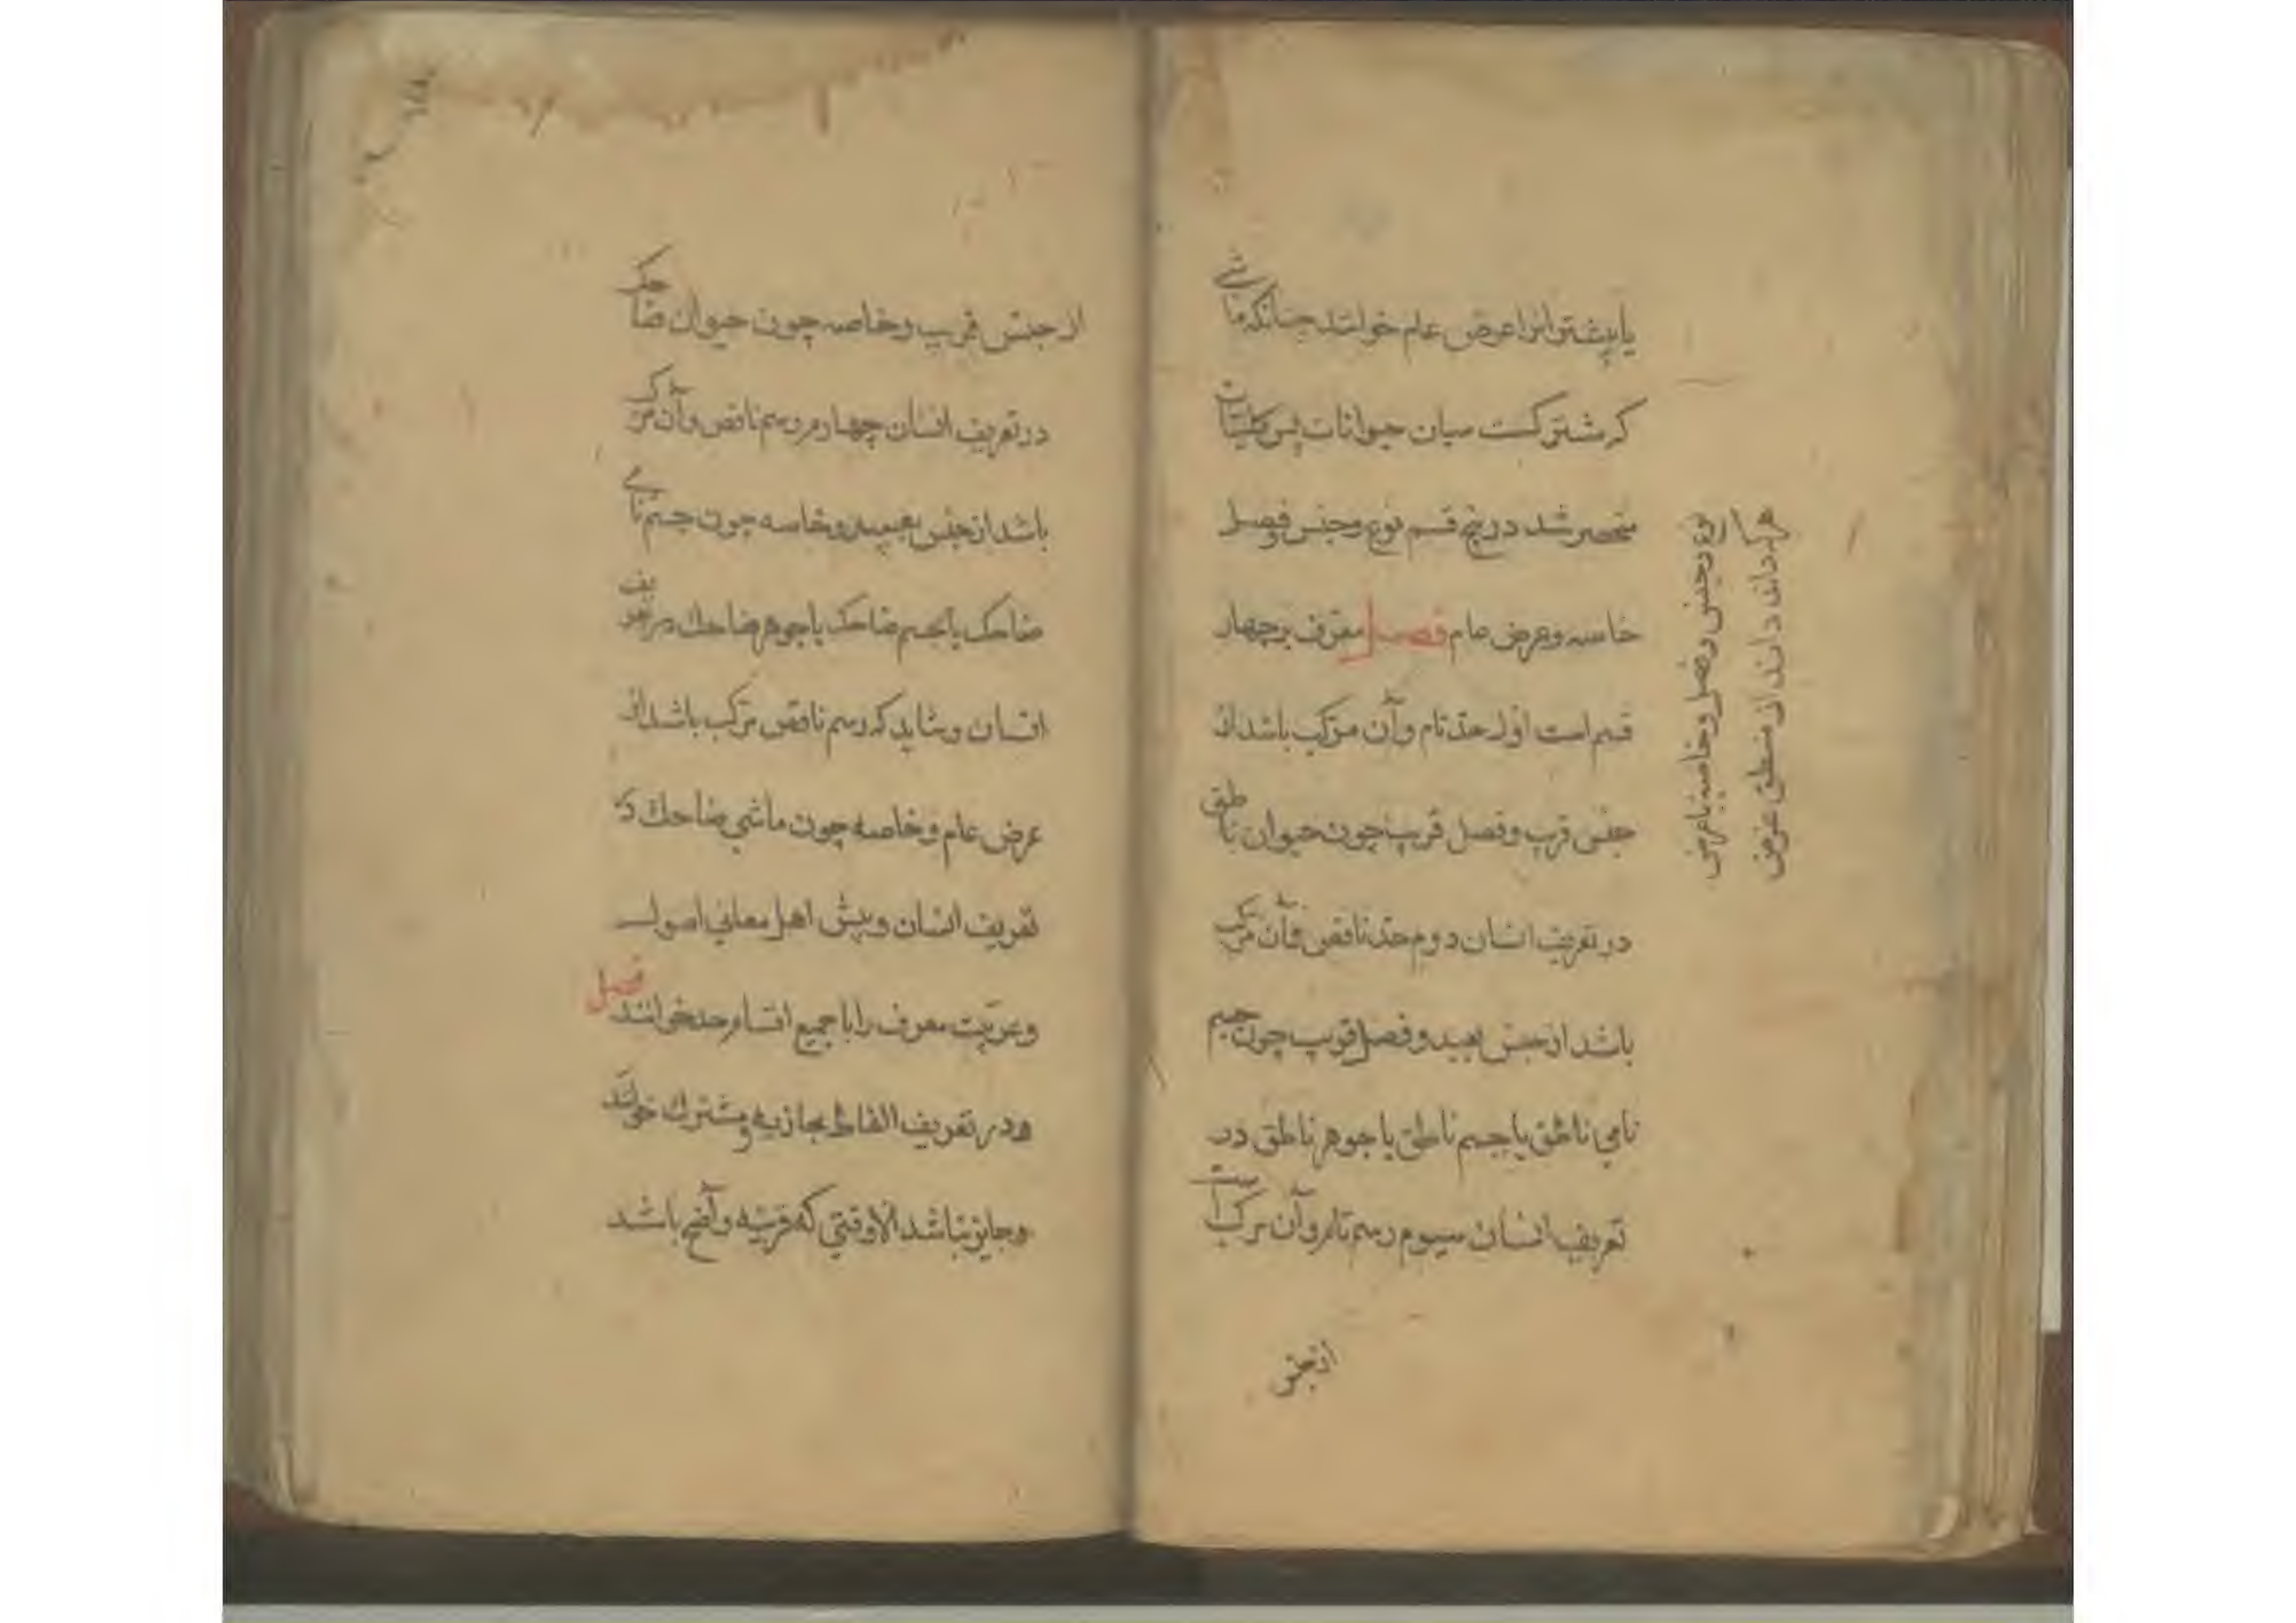 یا بیشتر انرا عرض عام خوانند چنانکه ماشی
که مشترکست میان حیوانات پس کلیات
منحصر شد در پنج قسم نوع و جنس و فصل
خاصه و عرض عام فصل معرف بر چهار
قسم است اول حد تام و آن مرکب باشد از
جنس قریب و فصل قریب چون حیوان ناطق
در تعریف انسان دوم حد ناقص و آن مرکب
باشد از جنس بعید و فصل قریب چون جسم
نامی ناطق یا جسم ناطق یا جوهر ناطق در
تعریف انسان سیوم رسم تام و آن مرکب است
از جنس
نوع و جنس و فصل و خاصه با عرض
دانند از منطق غرض
از جنس قریب و خاصه چون حیوان ضاحک
در تعریف انسان چهارم رسم ناقص و آن مرکب
باشد از جنس بعید و خاصه چون جسم نامی
ضاحک یا جسم ضاحک یا جوهر ضاحک در تعریف
انسان و شاید که رسم ناقص مرکب باشد از
عرض عام و خاصه چون ماشی ضاحک در
تعریف انسان و پیش اهل معانی اصول
و عربیت معرف را با جمیع اقسام حد خوانند فصل
در تعریف الفاظ مجازیه و مشترک خوانند
و جایز نباشد الا وقتی که قرینه واضح باشد